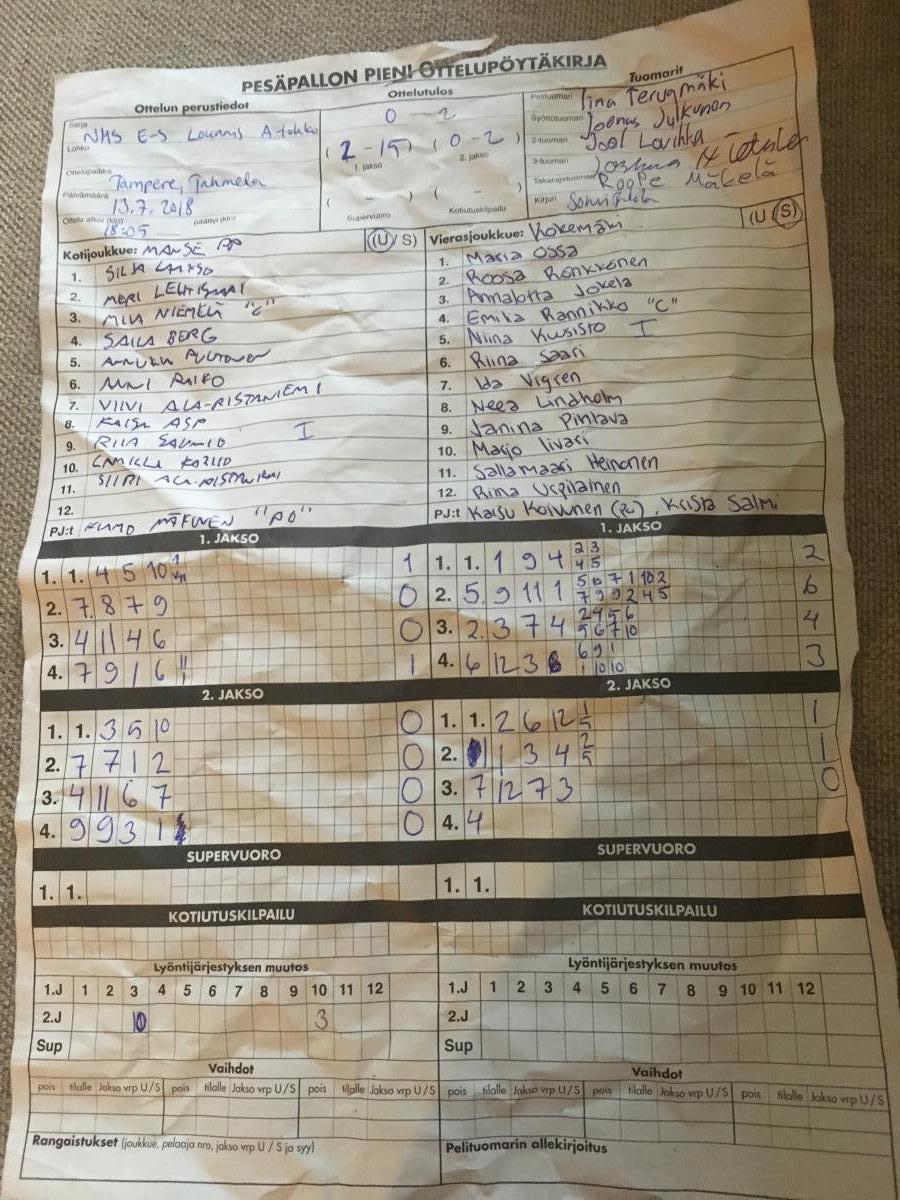 PESÄPALLON PIENI OTTELUPÖYTÄKIRJA
Ottelun perustiedot
Sarja
NMS E-S Lounais A-lohko
Lohko
Ottelupaikka
Tampere, Tahmela
Päivämäärä
13.7.2018
Ottelu alkoi (klo) päättyi (klo)
18:05
Ottelutulos
0 - 2
(2-15) (0-2)
1. jakso 2. jakso
( - ) ( - )
Supervuoro Kotiutuskilpailu
Tuomarit
Pelituomari Iina Tervamäki
Syöttötuomari Joonas Julkunen
2-tuomari Joel Lovihka
3-tuomari Joshua
Takarajatuomari Roope Mäkelä
Kirjuri
Kotijoukkue: MANSE PP (U/S)
1. SILJA LAAKSO
2. MERI
3. MIIA NIEMELÄ "C"
4. SAILA BERG
5. ANNUKKA
6. MINI RAIKO
7. VIIVI ALA-RISTANIEMI
8. KAISA ASP
9. RIIA SALMIO I
10. CAMILLA
11. SIIRI ALA-RISTANIEMI
12.
PJ:t MÄKINEN "PO"
Vierasjoukkue: Kokemäki (U/S)
1. Maria Ossa
2. Roosa Rönkkönen
3. Annalotta Jokela
4. Emika Rannikko "C"
5. Niina Kuusisto I
6. Riina Saari
7. Ida Vigren
8. Neea Lindholm
9. Janina Pihlava
10. Marjo Iivari
11. Sallamaari Heinonen
12. Riina Urpilainen
PJ:t Kaisu Koivunen (PJ), Krista Salmi
1. JAKSO
1. 1. 4 5 10 1
2. 7 8 7 9 0
3. 4 11 4 6 0
4. 7 9 1 6 11 1
1. JAKSO
1. 1. 1 9 4 2 3 4 5 2
2. 5 9 11 1 5 6 7 1 10 2 7 9 9 2 4 5 6
3. 2 3 7 4 2 4 5 6 5 6 7 10 4
4. 6 12 3 8 6 9 1 1 10 10 3
2. JAKSO
1. 1. 3 5 10 0
2. 7 7 1 2 0
3. 4 11 6 7 0
4. 9 9 3 1 0
2. JAKSO
1. 1. 2 6 12 1 5 1
2. 1 3 4 2 5 1
3. 7 12 7 3 0
4. 4
SUPERVUORO
1. 1.
SUPERVUORO
1. 1.
KOTIUTUSKILPAILU
KOTIUTUSKILPAILU
Lyöntijärjestyksen muutos
1.J 1 2 3 4 5 6 7 8 9 10 11 12
2.J 10 3
Sup
Lyöntijärjestyksen muutos
1.J 1 2 3 4 5 6 7 8 9 10 11 12
2.J
Sup
Vaihdot
pois tilalle Jakso vrp U/S pois tilalle Jakso vrp U/S pois tilalle Jakso vrp U/S
Vaihdot
pois tilalle Jakso vrp U/S pois tilalle Jakso vrp U/S pois tilalle Jakso vrp U/S
Rangaistukset (joukkue, pelaaja nro, jakso vrp U / S ja syy)
Pelituomarin allekirjoitus